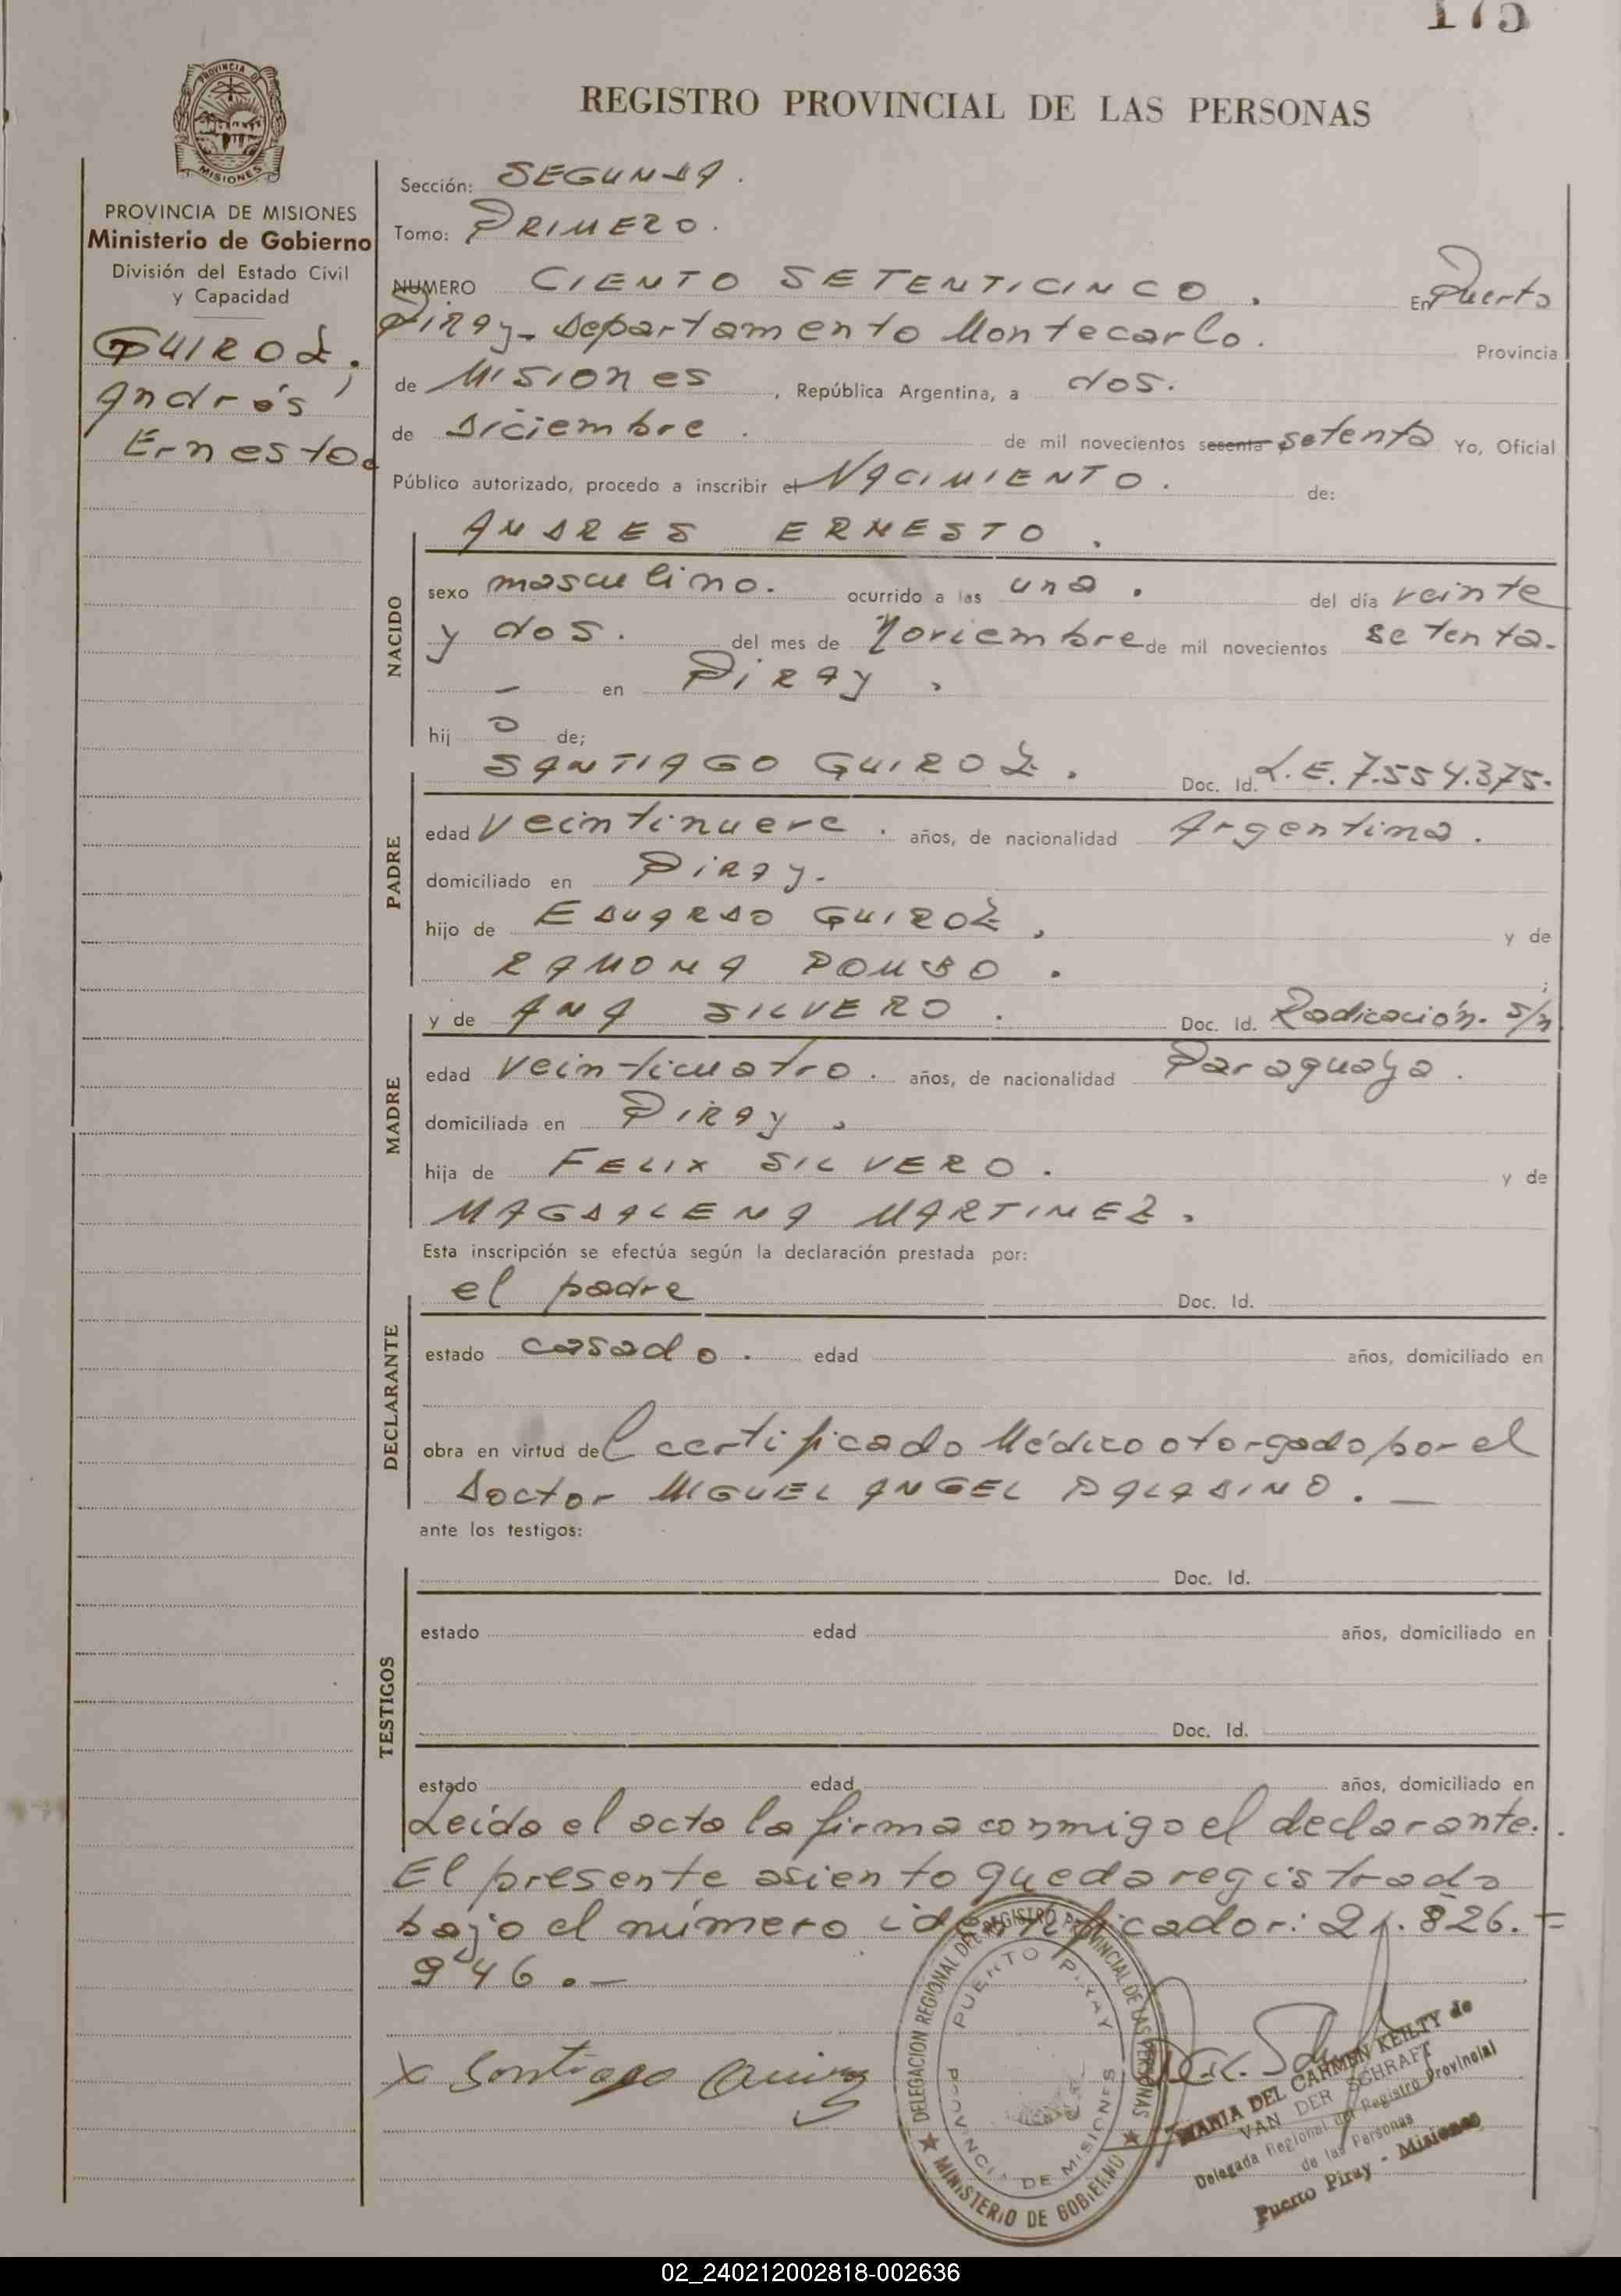 175
REGISTRO PROVINCIAL DE LAS PERSONAS
PROVINCIA DE
MISIONES
PROVINCIA DE MISIONES
Ministerio de Gobierno
División del Estado Civil
y Capacidad
GUIROZ,
Andrés
Ernesto.
Sección: SEGUNDA.
Tomo: PRIMERO.
NUMERO CIENTO SETENTICINCO. En Puerto
PIRAY- Departamento Montecarlo. Provincia
de Misiones, República Argentina, a dos.
de Diciembre. de mil novecientos sesenta setenta Yo, Oficial
Público autorizado, procedo a inscribir el NACIMIENTO. de:
ANDRES ERNESTO.
NACIDO
sexo masculino. ocurrido a las una. del día veinte
y dos. del mes de Noviembre de mil novecientos setenta-
— en PIRAY.
hij o de;
SANTIAGO GUIROZ. Doc. Id. L.E. 7.554.375.
PADRE
edad veintinueve. años, de nacionalidad Argentina.
domiciliado en PIRAY.
hijo de EDUARDO GUIROZ, y de
RAMONA POMBO. ;
MADRE
y de ANA SILVERO. Doc. Id. Radicación. S/n
edad veinticuatro. años, de nacionalidad Paraguaya.
domiciliada en PIRAY.
hija de FELIX SILVERO. y de
MAGDALENA MARTINEZ.
Esta inscripción se efectúa según la declaración prestada por:
DECLARANTE
el padre Doc. Id.
estado casado. edad años, domiciliado en
obra en virtud del certificado Médico otorgado por el
Doctor MIGUEL ANGEL PALADINO. —
ante los testigos:
TESTIGOS
Doc. Id.
estado edad años, domiciliado en
Doc. Id.
estado edad años, domiciliado en
Leída el acta la firma conmigo el declarante.
El presente asiento queda registrado
bajo el número identificador: 21.826.=
946.—
X Santiago Quiroz
DELEGACION REGIONAL DEL REGISTRO PROVINCIAL DE LAS PERSONAS
★ MINISTERIO DE GOBIERNO ★
PUERTO PIRAY
PROVINCIA DE MISIONES
MARIA DEL CARMEN KEILTY de
VAN DER SCHRAFT
Delegada Regional del Registro Provincial
de las Personas
Puerto Piray - Misiones
02_240212002818-002636